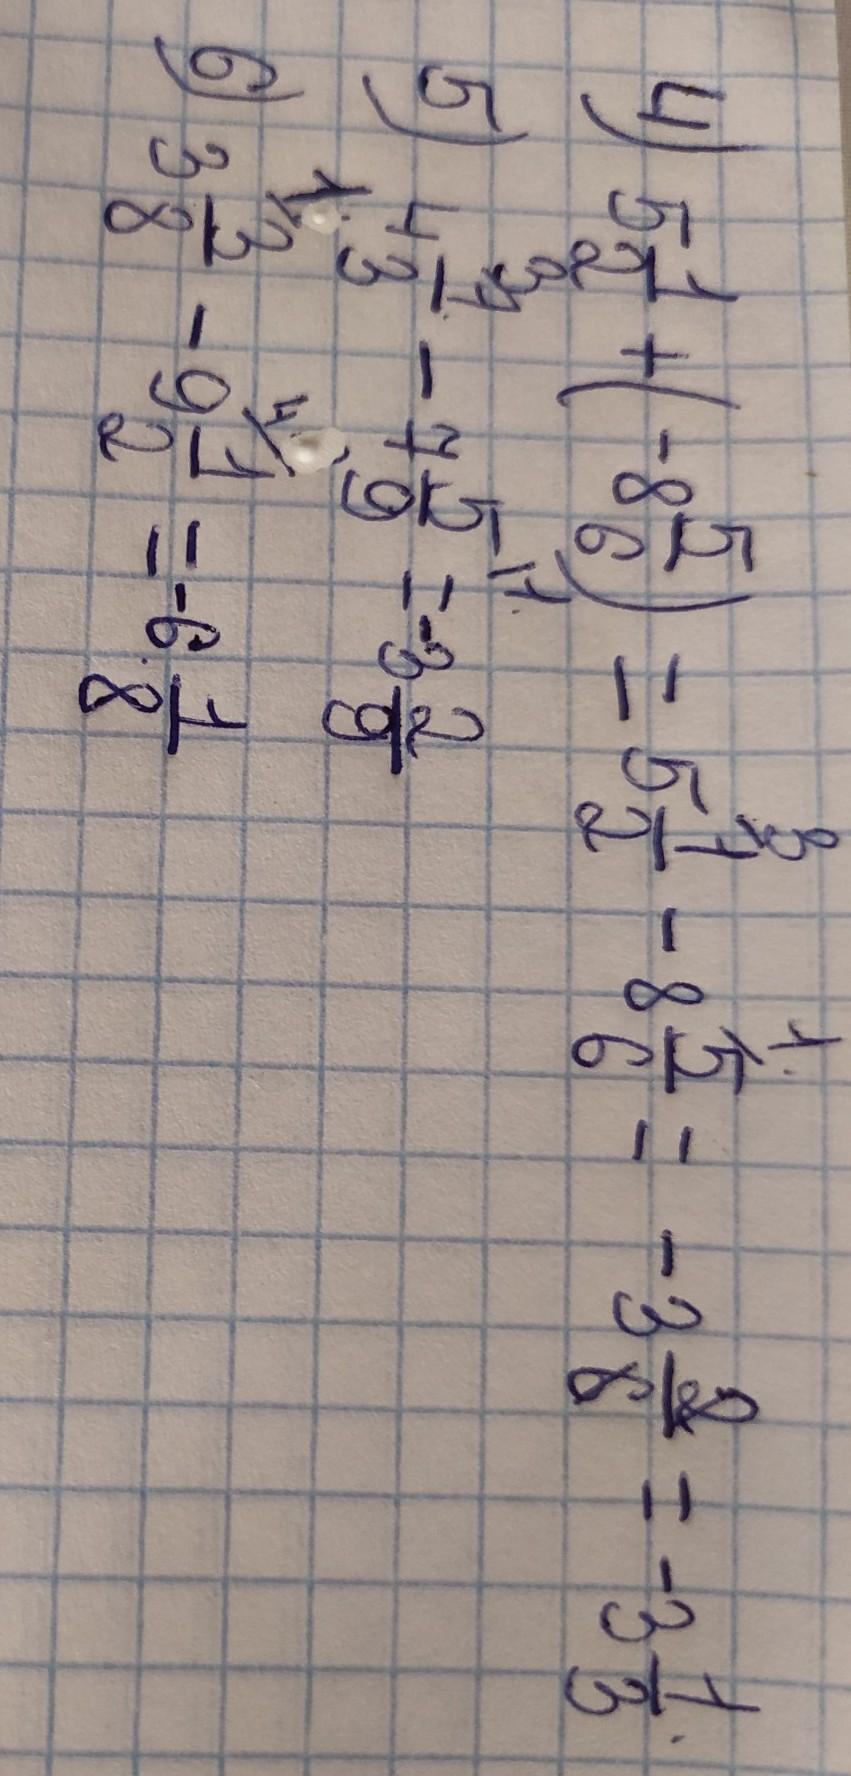 4) 5 1/2 + (-8 5/6) = 5 1/2 ³ - 8 5/6 ¹ = -3 2/6 = -3 1/3
5) 4 1/3 ³ - 7 5/9 ¹ = -3 2/9
6) 3 3/8 ¹ - 9 1/2 ⁴ = -6 1/8